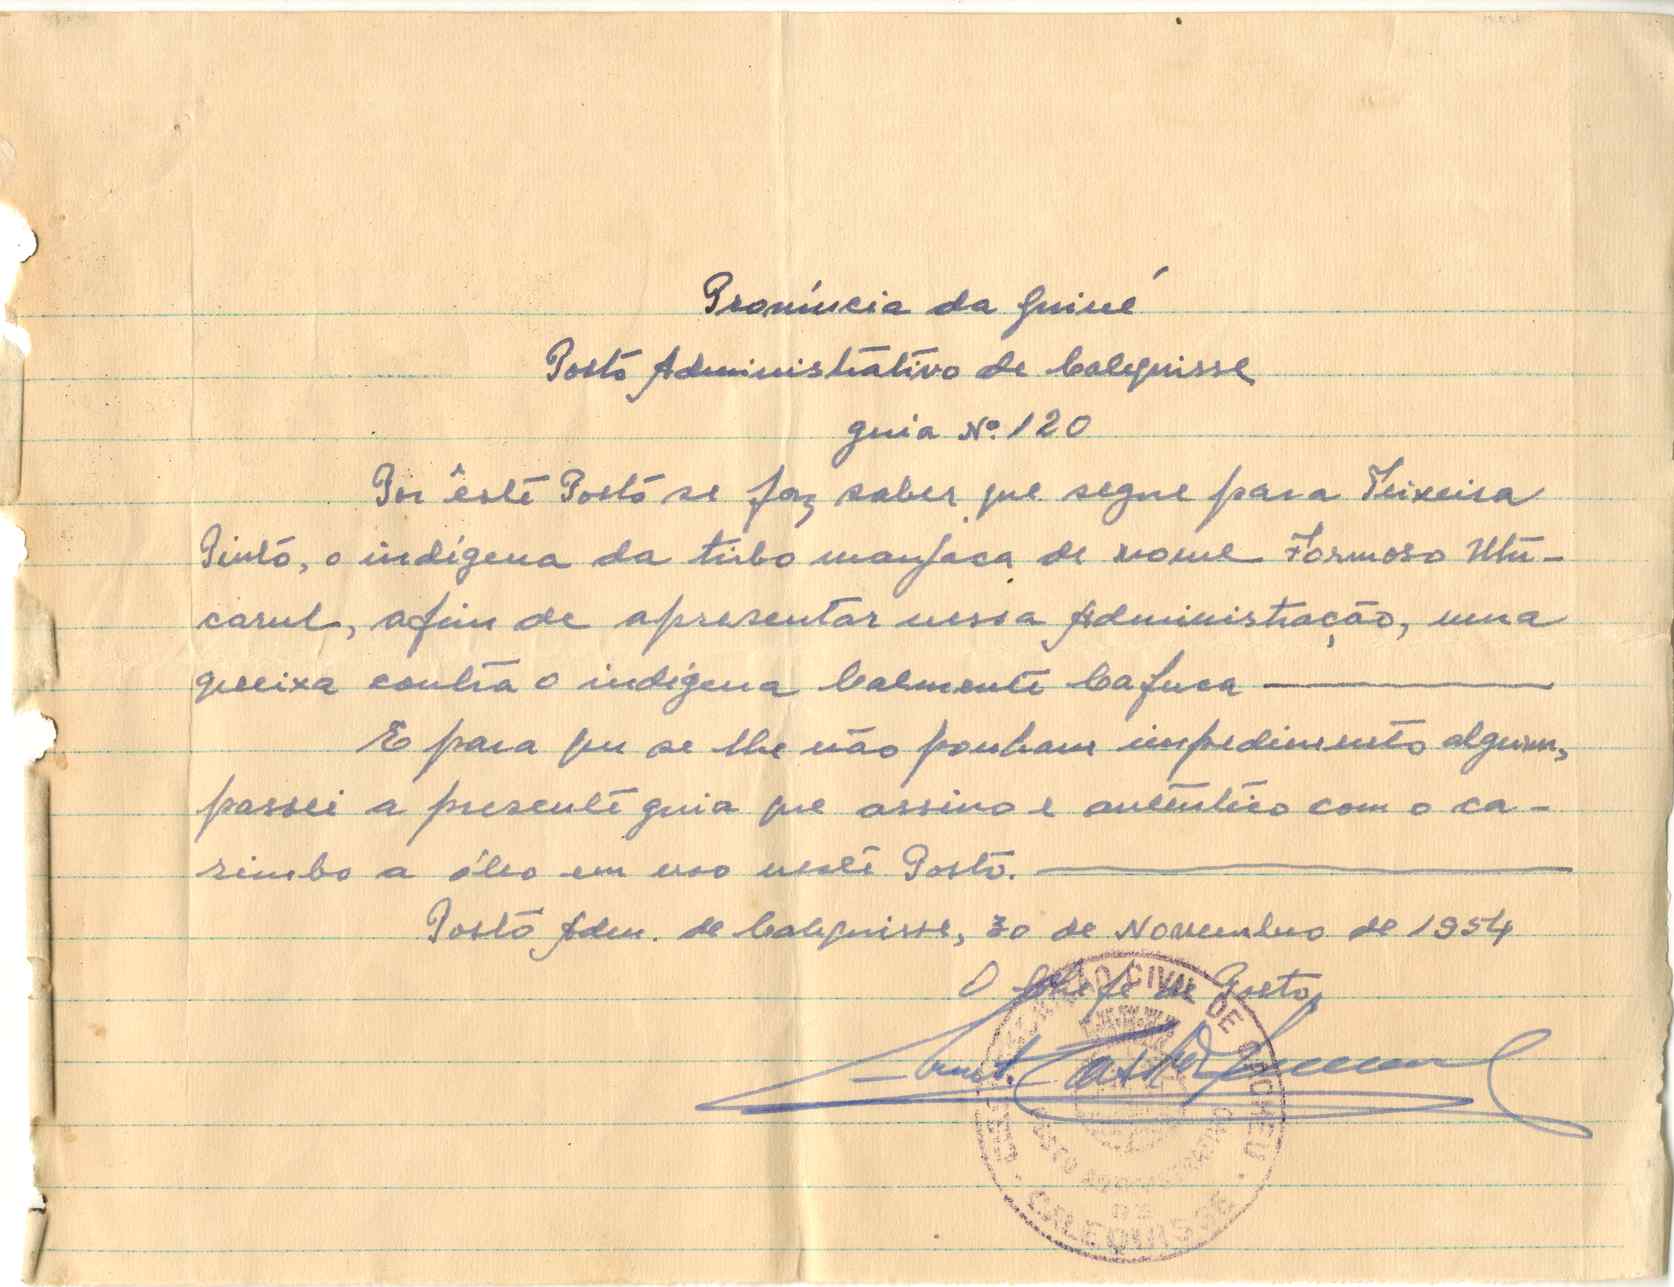 Província da Guiné
Posto Administrativo de Calequisse
guia Nº 120
Por êste Posto se faz saber que segue para Teixeira
Pinto, o indígena da tribo manjaca de nome Formoso Utu-
carul, afim de apresentar nessa Administração, uma
queixa contra o indígena Calmente Cafuca
E para que se lhe não ponham impedimento algum,
passei a presente guia que assino e autêntico com o ca-
rimbo a óleo em uso neste Posto.
Posto Adm. de Calequisse, 30 de Novembro de 1954
O Chefe de Posto,
CIVIL DE CACHEU
POSTO ADMINISTRATIVO
DE
CALEQUISSE